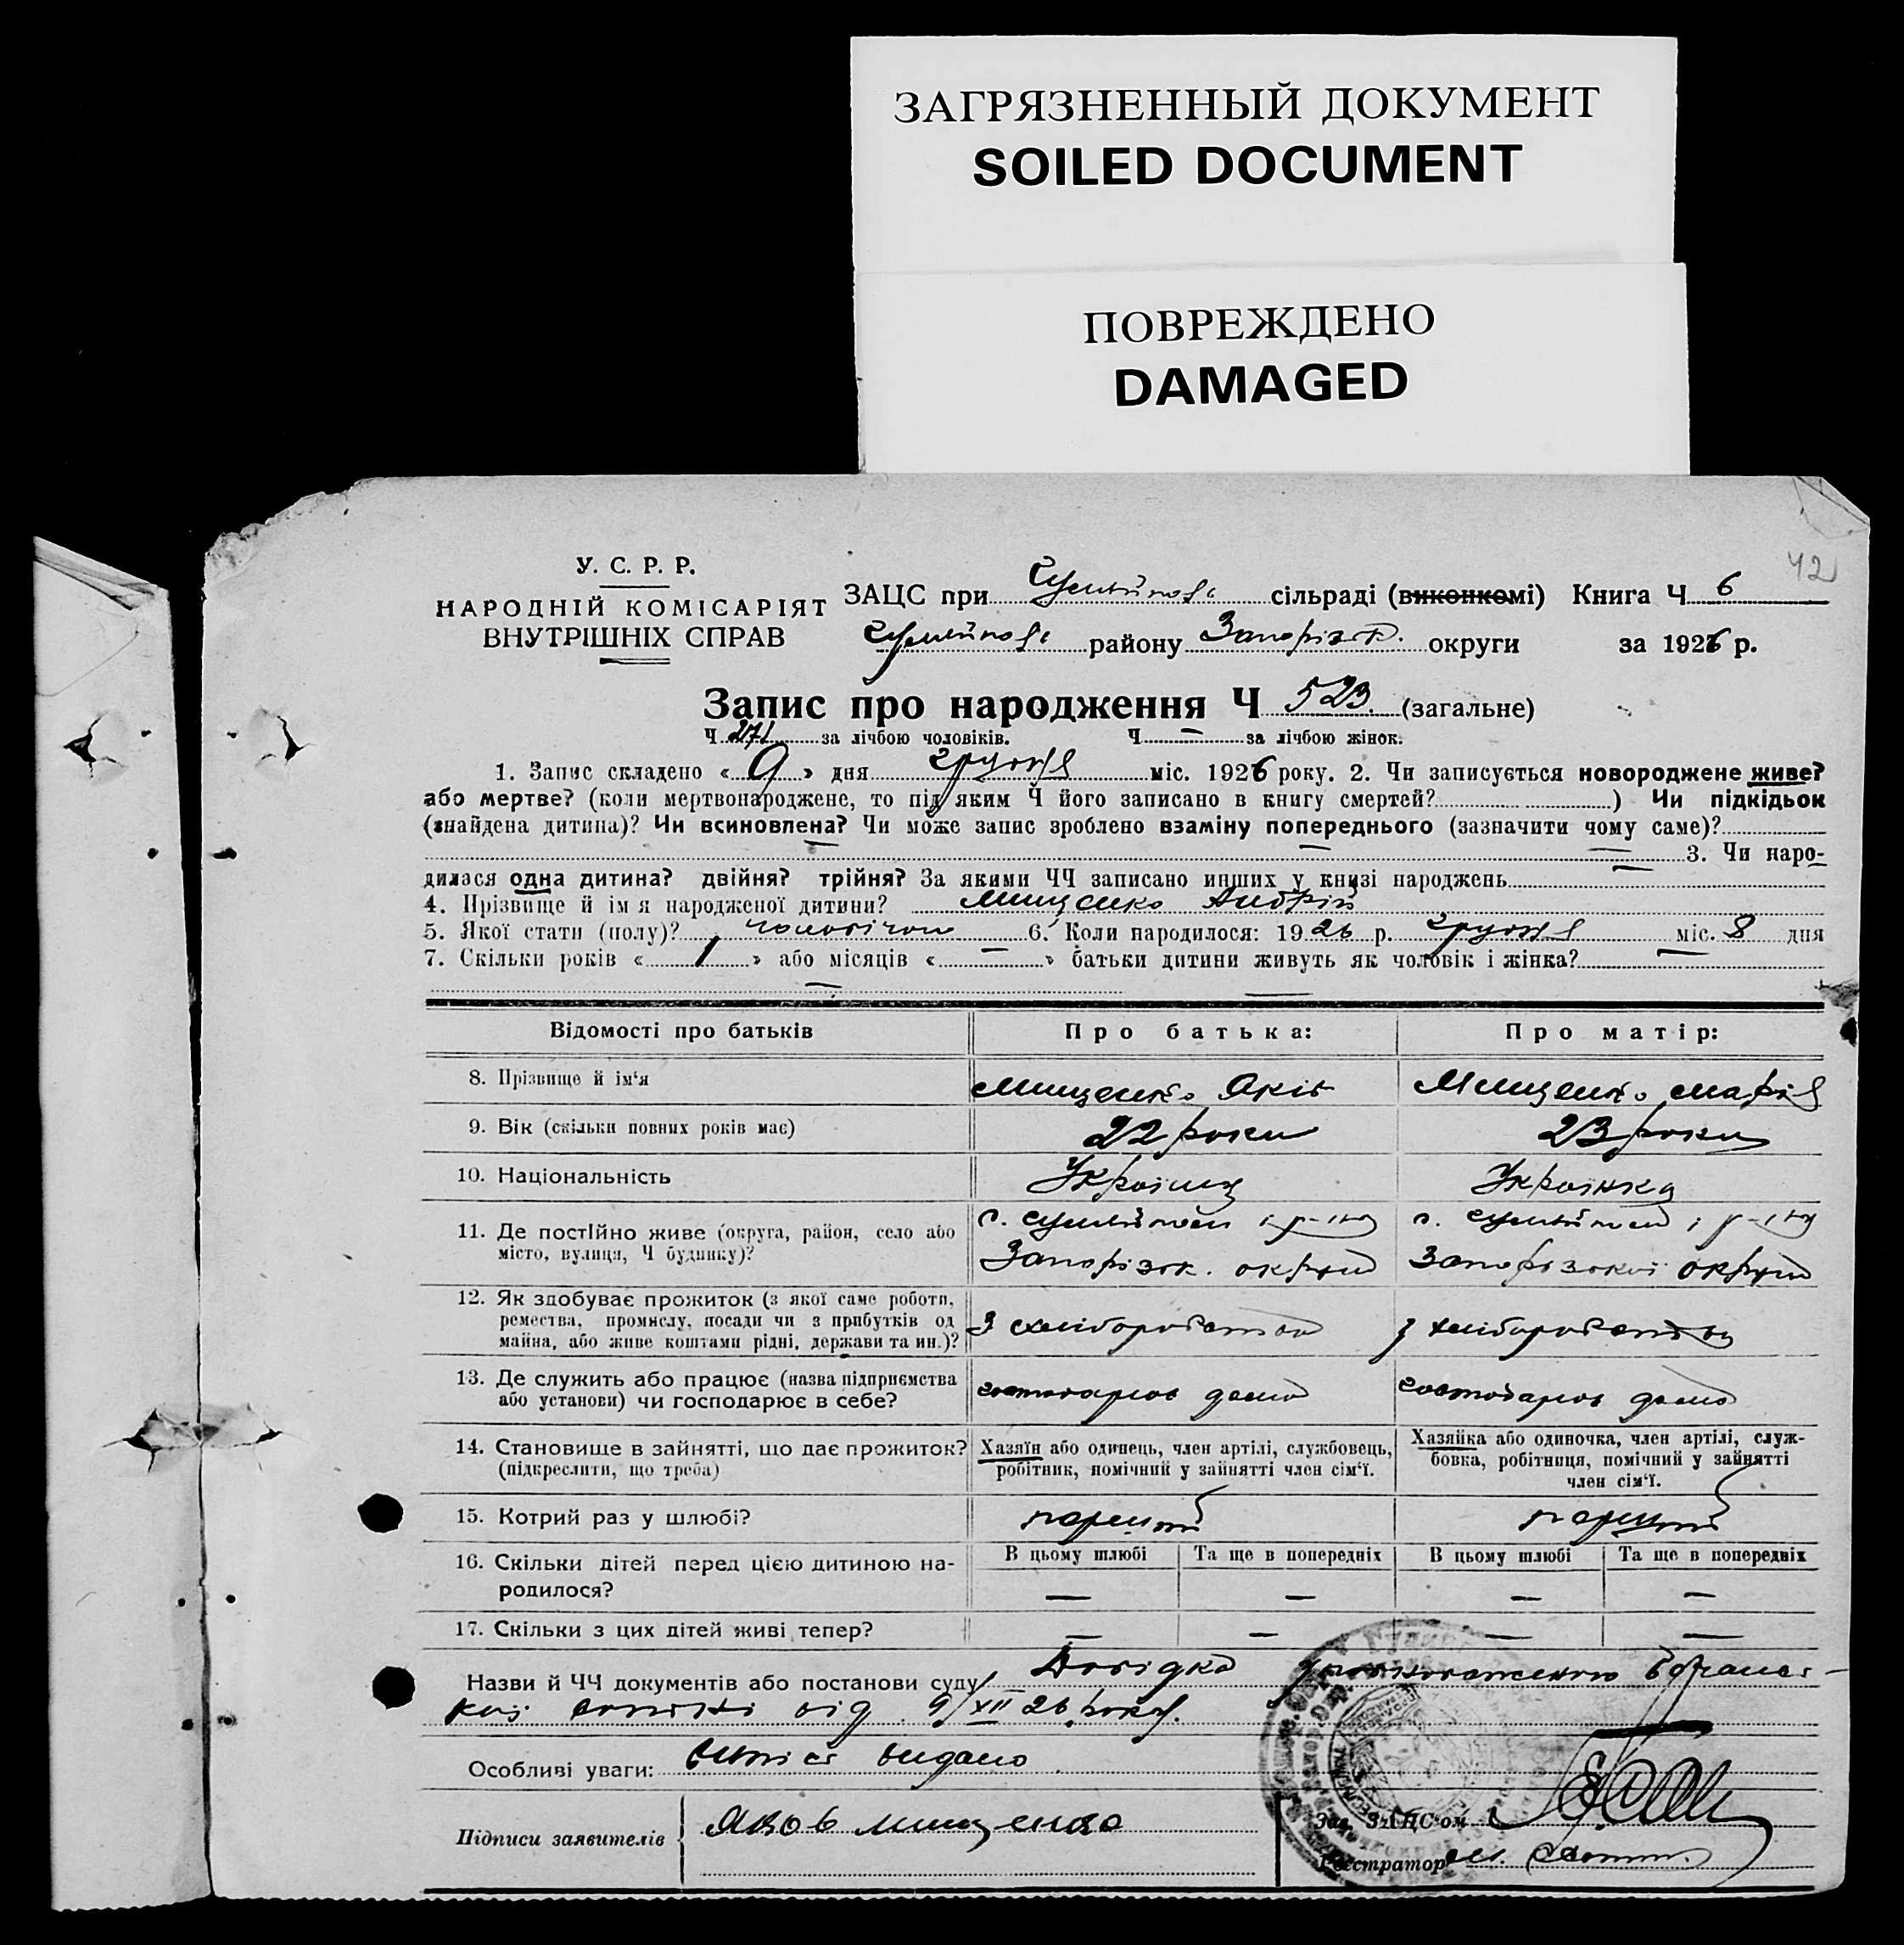 ЗАГРЯЗНЕННЫЙ ДОКУМЕНТ
SOILED DOCUMENT
ПОВРЕЖДЕНО
DAMAGED
42
У. С. Р. Р.
НАРОДНІЙ КОМІСАРІЯТ
ВНУТРІШНІХ СПРАВ
ЗАЦС при сільраді (виконкомі) Книга Ч 6
району Запорізьк. округи за 1926 р.
Запис про народження Ч 523 (загальне)
Ч 271 за лічбою чоловіків. Ч — за лічбою жінок.
1. Запис складено « 9 » дня грудня міс. 1926 року. 2. Чи записується новороджене живе?
або мертве? (коли мертвонароджене, то під яким Ч його записано в книгу смертей? ) Чи підкідьок
(знайдена дитина)? Чи всиновлена? Чи може запис зроблено взаміну попереднього (зазначити чому саме)?
— 3. Чи наро-
дилася одна дитина? двійня? трійня? За якими ЧЧ записано инших у книзі народжень —
4. Прізвище й імя народженої дитини? Мищенко Андрій
5. Якої стати (полу)? чоловічої 6. Коли народилося: 1926 р. грудня міс. 8 дня
7. Скільки років « 1 » або місяців « — » батьки дитини живуть як чоловік і жінка? —
Відомості про батьків Про батька: Про матір:
8. Прізвище й ім'я Мищенко Яків Мищенко Марія
9. Вік (скільки повних років має) 22 роки 23 роки
10. Національність Українец Українка
11. Де постійно живе (округа, район, село або
місто, вулиця, Ч будинку)?
Запорізьк. округи Запорізької округи
12. Як здобуває прожиток (з якої саме роботи,
ремества, промислу, посади чи з прибутків од
майна, або живе коштами рідні, держави та ин.)? З хліборобства з хліборобства
13. Де служить або працює (назва підприємства
або установи) чи господарює в себе? господарює дома господарює дома
14. Становище в зайнятті, що дає прожиток?
(підкреслити, що треба)
Хазяїн або одинець, член артілі, службовець,
робітник, помічний у зайнятті член сім'ї.
Хазяйка або одиночка, член артілі, служ-
бовка, робітниця, помічний у зайнятті
член сім'ї.
15. Котрий раз у шлюбі? перший перший
16. Скільки дітей перед цією дитиною на-
родилося?
В цьому шлюбі Та ще в попередніх В цьому шлюбі Та ще в попередніх
— — — —
17. Скільки з цих дітей живі тепер? — — — —
Назви й ЧЧ документів або постанови суду Довідка
від 9/XII 26 року.
Особливі уваги: видано
Підписи заявителів Яков Мищенко
Зав. ЗАЦС'ом
Реєстратор